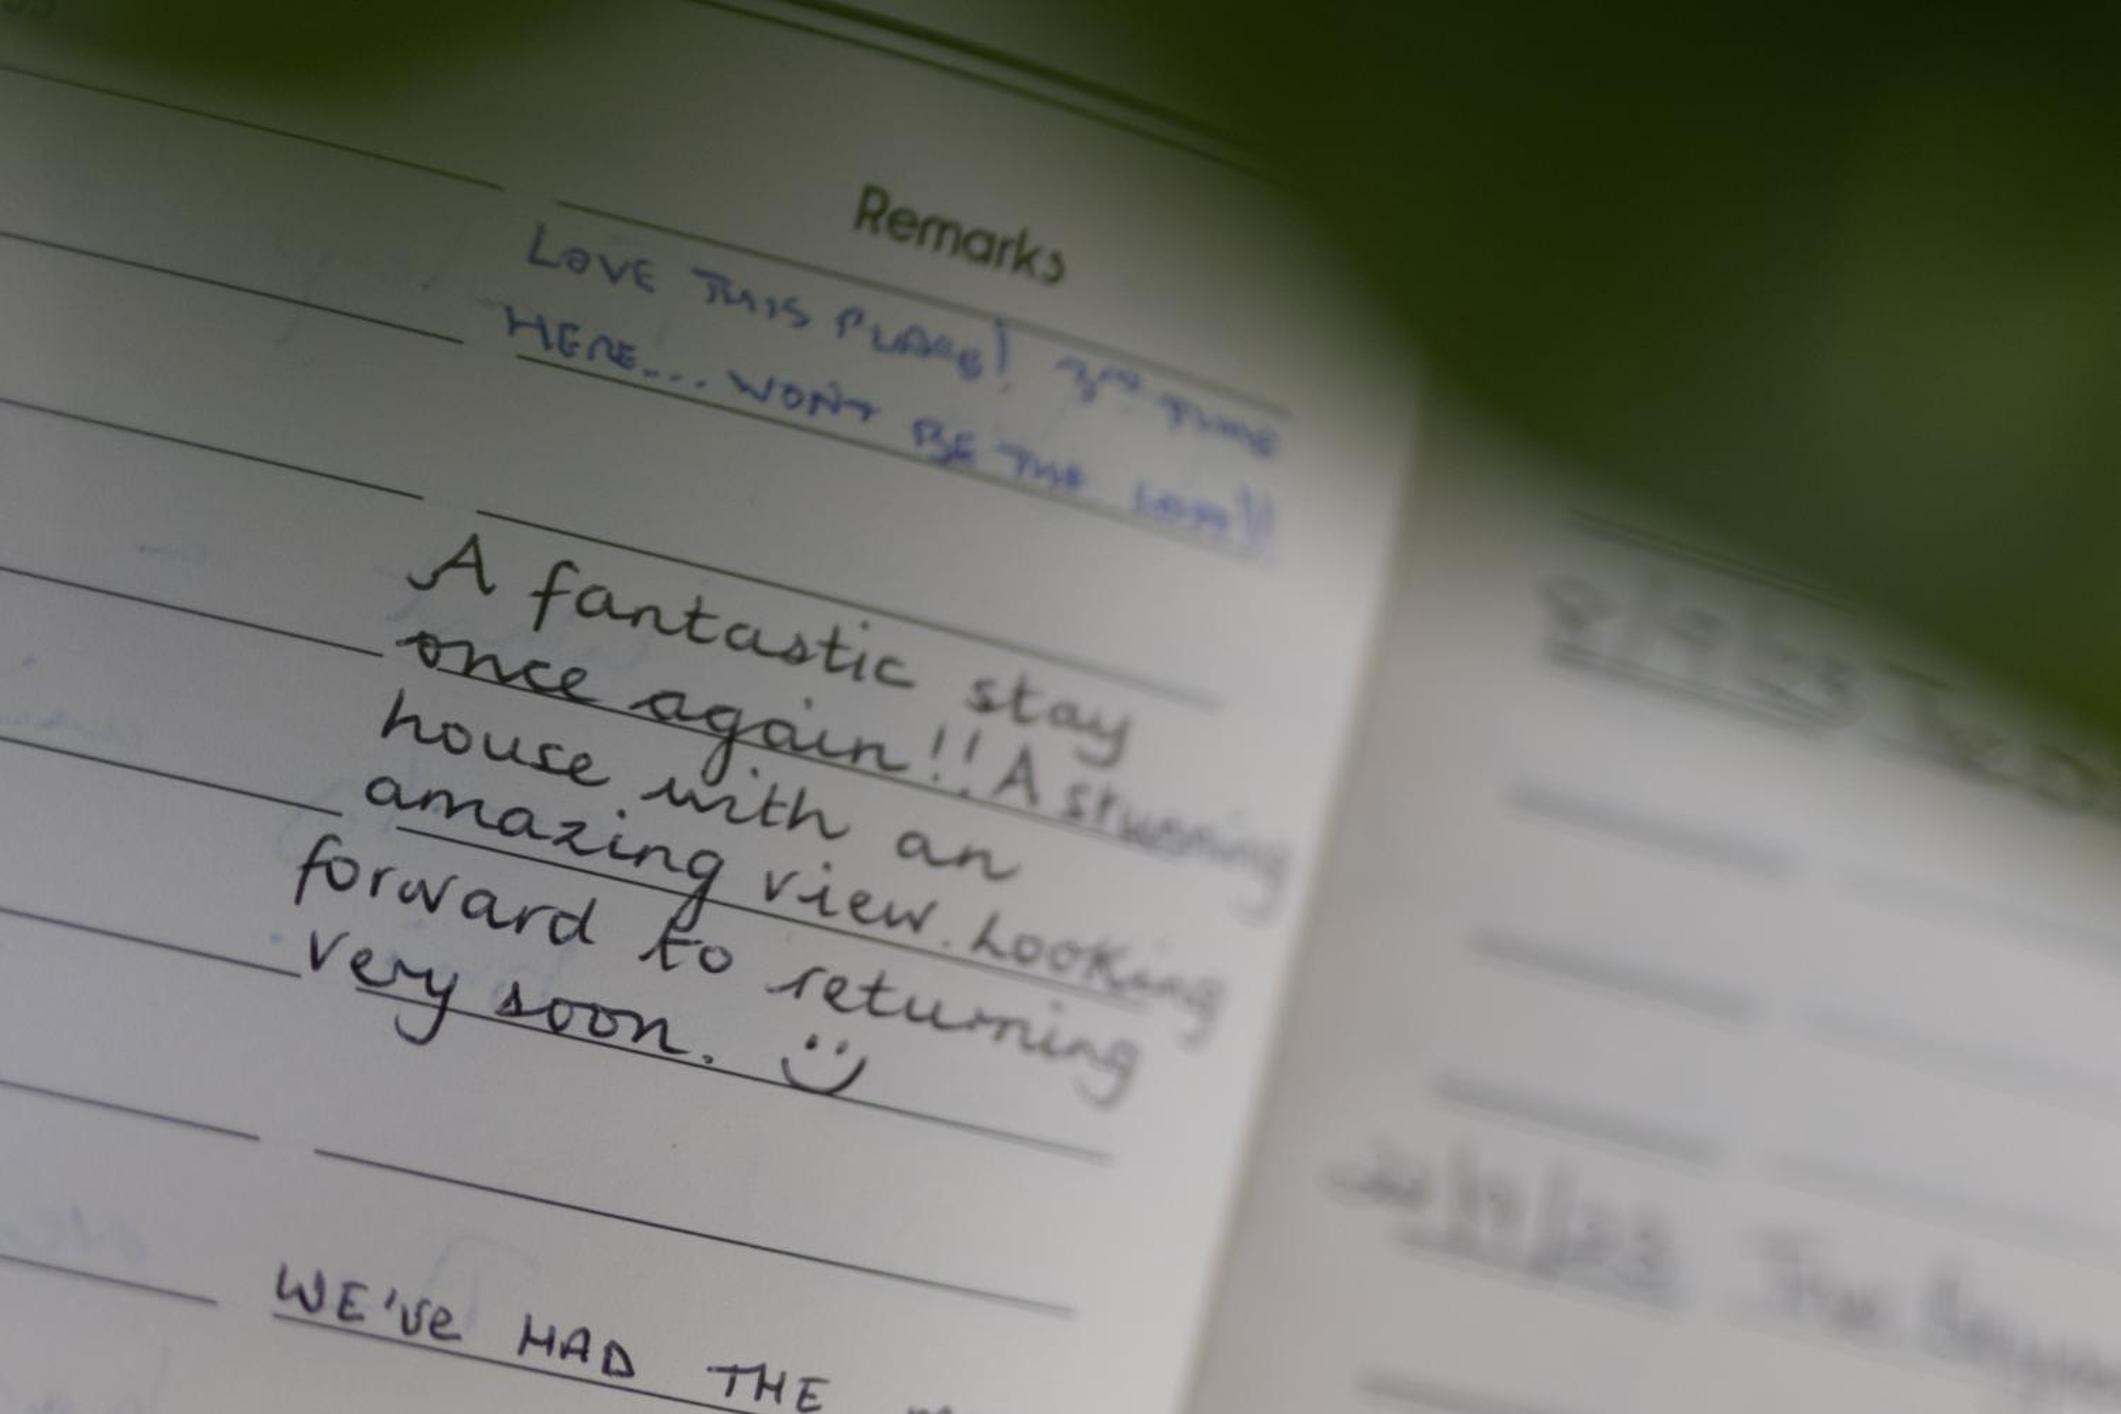 Remarks
LOVE THIS PLACE! 3RD TIME
HERE.... WONT BE THE LAST!!
A fantastic stay
once again!! A stunning
house with an
amazing view. Looking
forward to returning
very soon.
WE'VE HAD THE